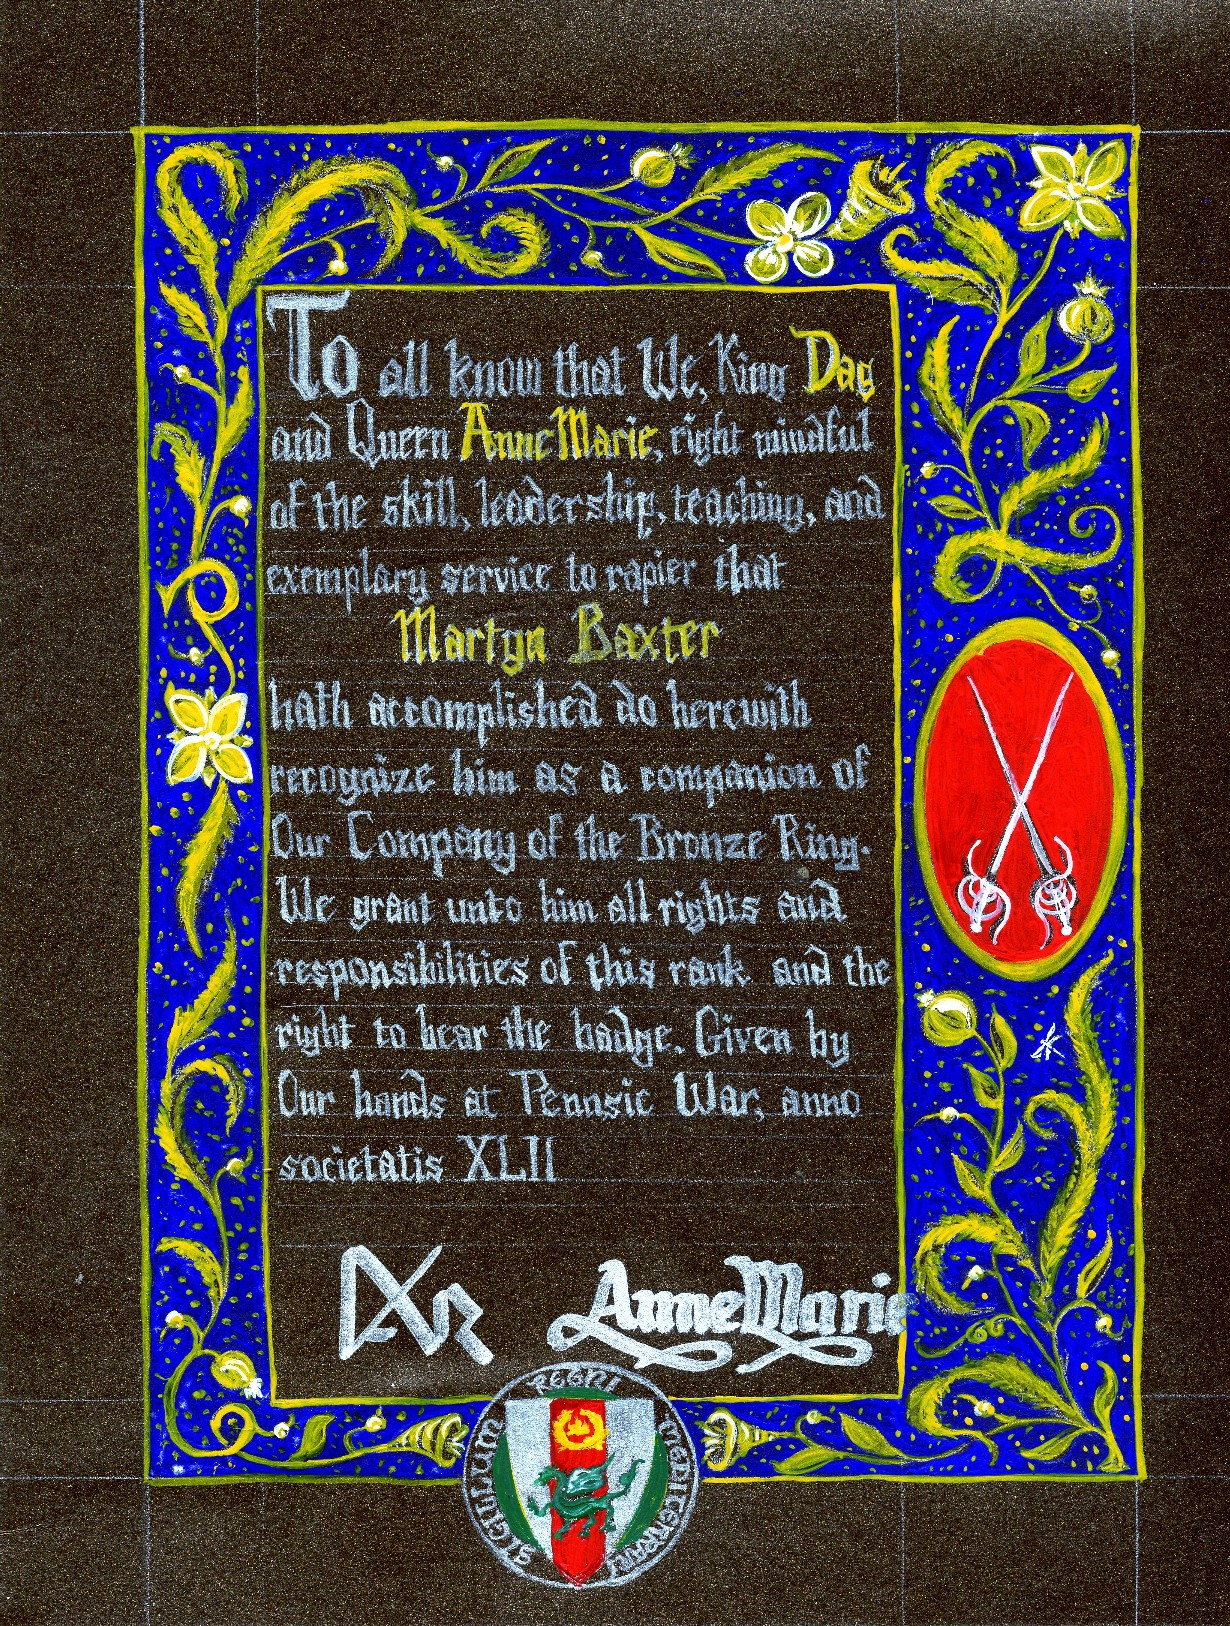 To all know that We, King Dag
and Queen AnneMarie, right mindful
of the skill, leadership, teaching, and
exemplary service to rapier that
Martyn Baxter
hath accomplished do herewith
recognize him as a companion of
Our Company of the Bronze Ring.
We grant unto him all rights and
responsibilities of this rank and the
right to bear the badge. Given by
Our hands at Pennsic War, anno
societatis XLII
AnneMarie
SIGILLUM REGNI MEDITERRANI